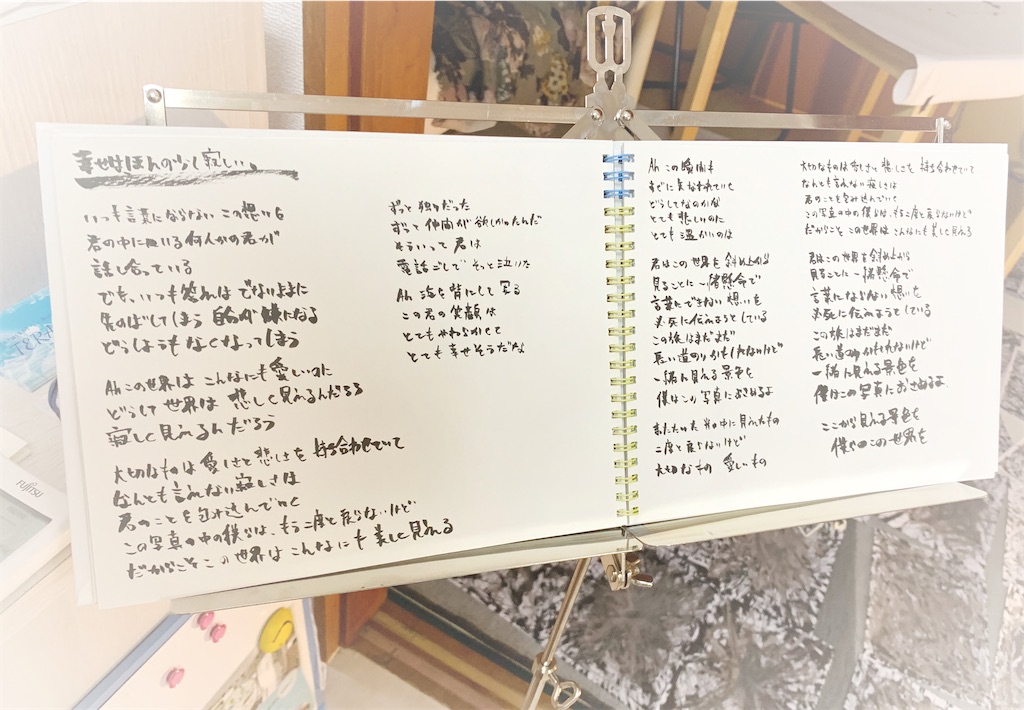 幸せはほんの少し寂しい。
いつも言葉にならない この想いも
君の中にいる何人かの君が
話し合っている
でも、いつも答えは でないままに
先のばしてしまう 自分が嫌になる
どうしようも なくなってしまう
Ah この世界は こんなにも愛しいのに
どうして 世界は 悲しく見えるんだろう
寂しく見えるんだろう
大切なものは 愛しさと 悲しさを 持ち合わせていて
なんとも言えない寂しさは
君のことを包み込んでいく
この写真の中の僕らは、もう二度と戻らないけど
だからこそ この世界は こんなにも 美しく見える
ずっと 独りだった
ずっと 仲間が 欲しかったんだ
そういって 君は
電話ごしで そっと泣いた
Ah 海を背にして 写る
この君の 笑顔は
とても やわらかくて
とても 幸せそうだな
Ah この瞬間も
すぐに 失なわれていく
どうしてなのかな
とても 悲しいのに
とても 温かいのは
君はこの世界を 斜め上から
見ることに 一生懸命で
言葉にできない 想いを
必死に伝えようとしている
この旅はまだまだ
長い道のりかもしれないけど
一緒に見える景色を
僕はこの写真におさめるよ
またたいた 光の中に 見えたもの
二度と 戻らないけど
大切なもの 愛しいもの
大切なものは 愛しさと 悲しさを 持ち合わせていて
なんとも言えない 寂しさは
君のことを包み込んでいく
この写真の中の僕らは、もう二度と戻らないけど
だからこそ この世界は こんなにも 美しく見える
君はこの世界を斜め上から
見ることに 一生懸命で
言葉にならない 想いを
必死に伝えようとしている
この旅はまだまだ
長い道のりかもしれないけど
一緒に見える景色を
僕はこの写真に おさめるよ
ここから 見える景色を
僕や この世界を
FUJITSU